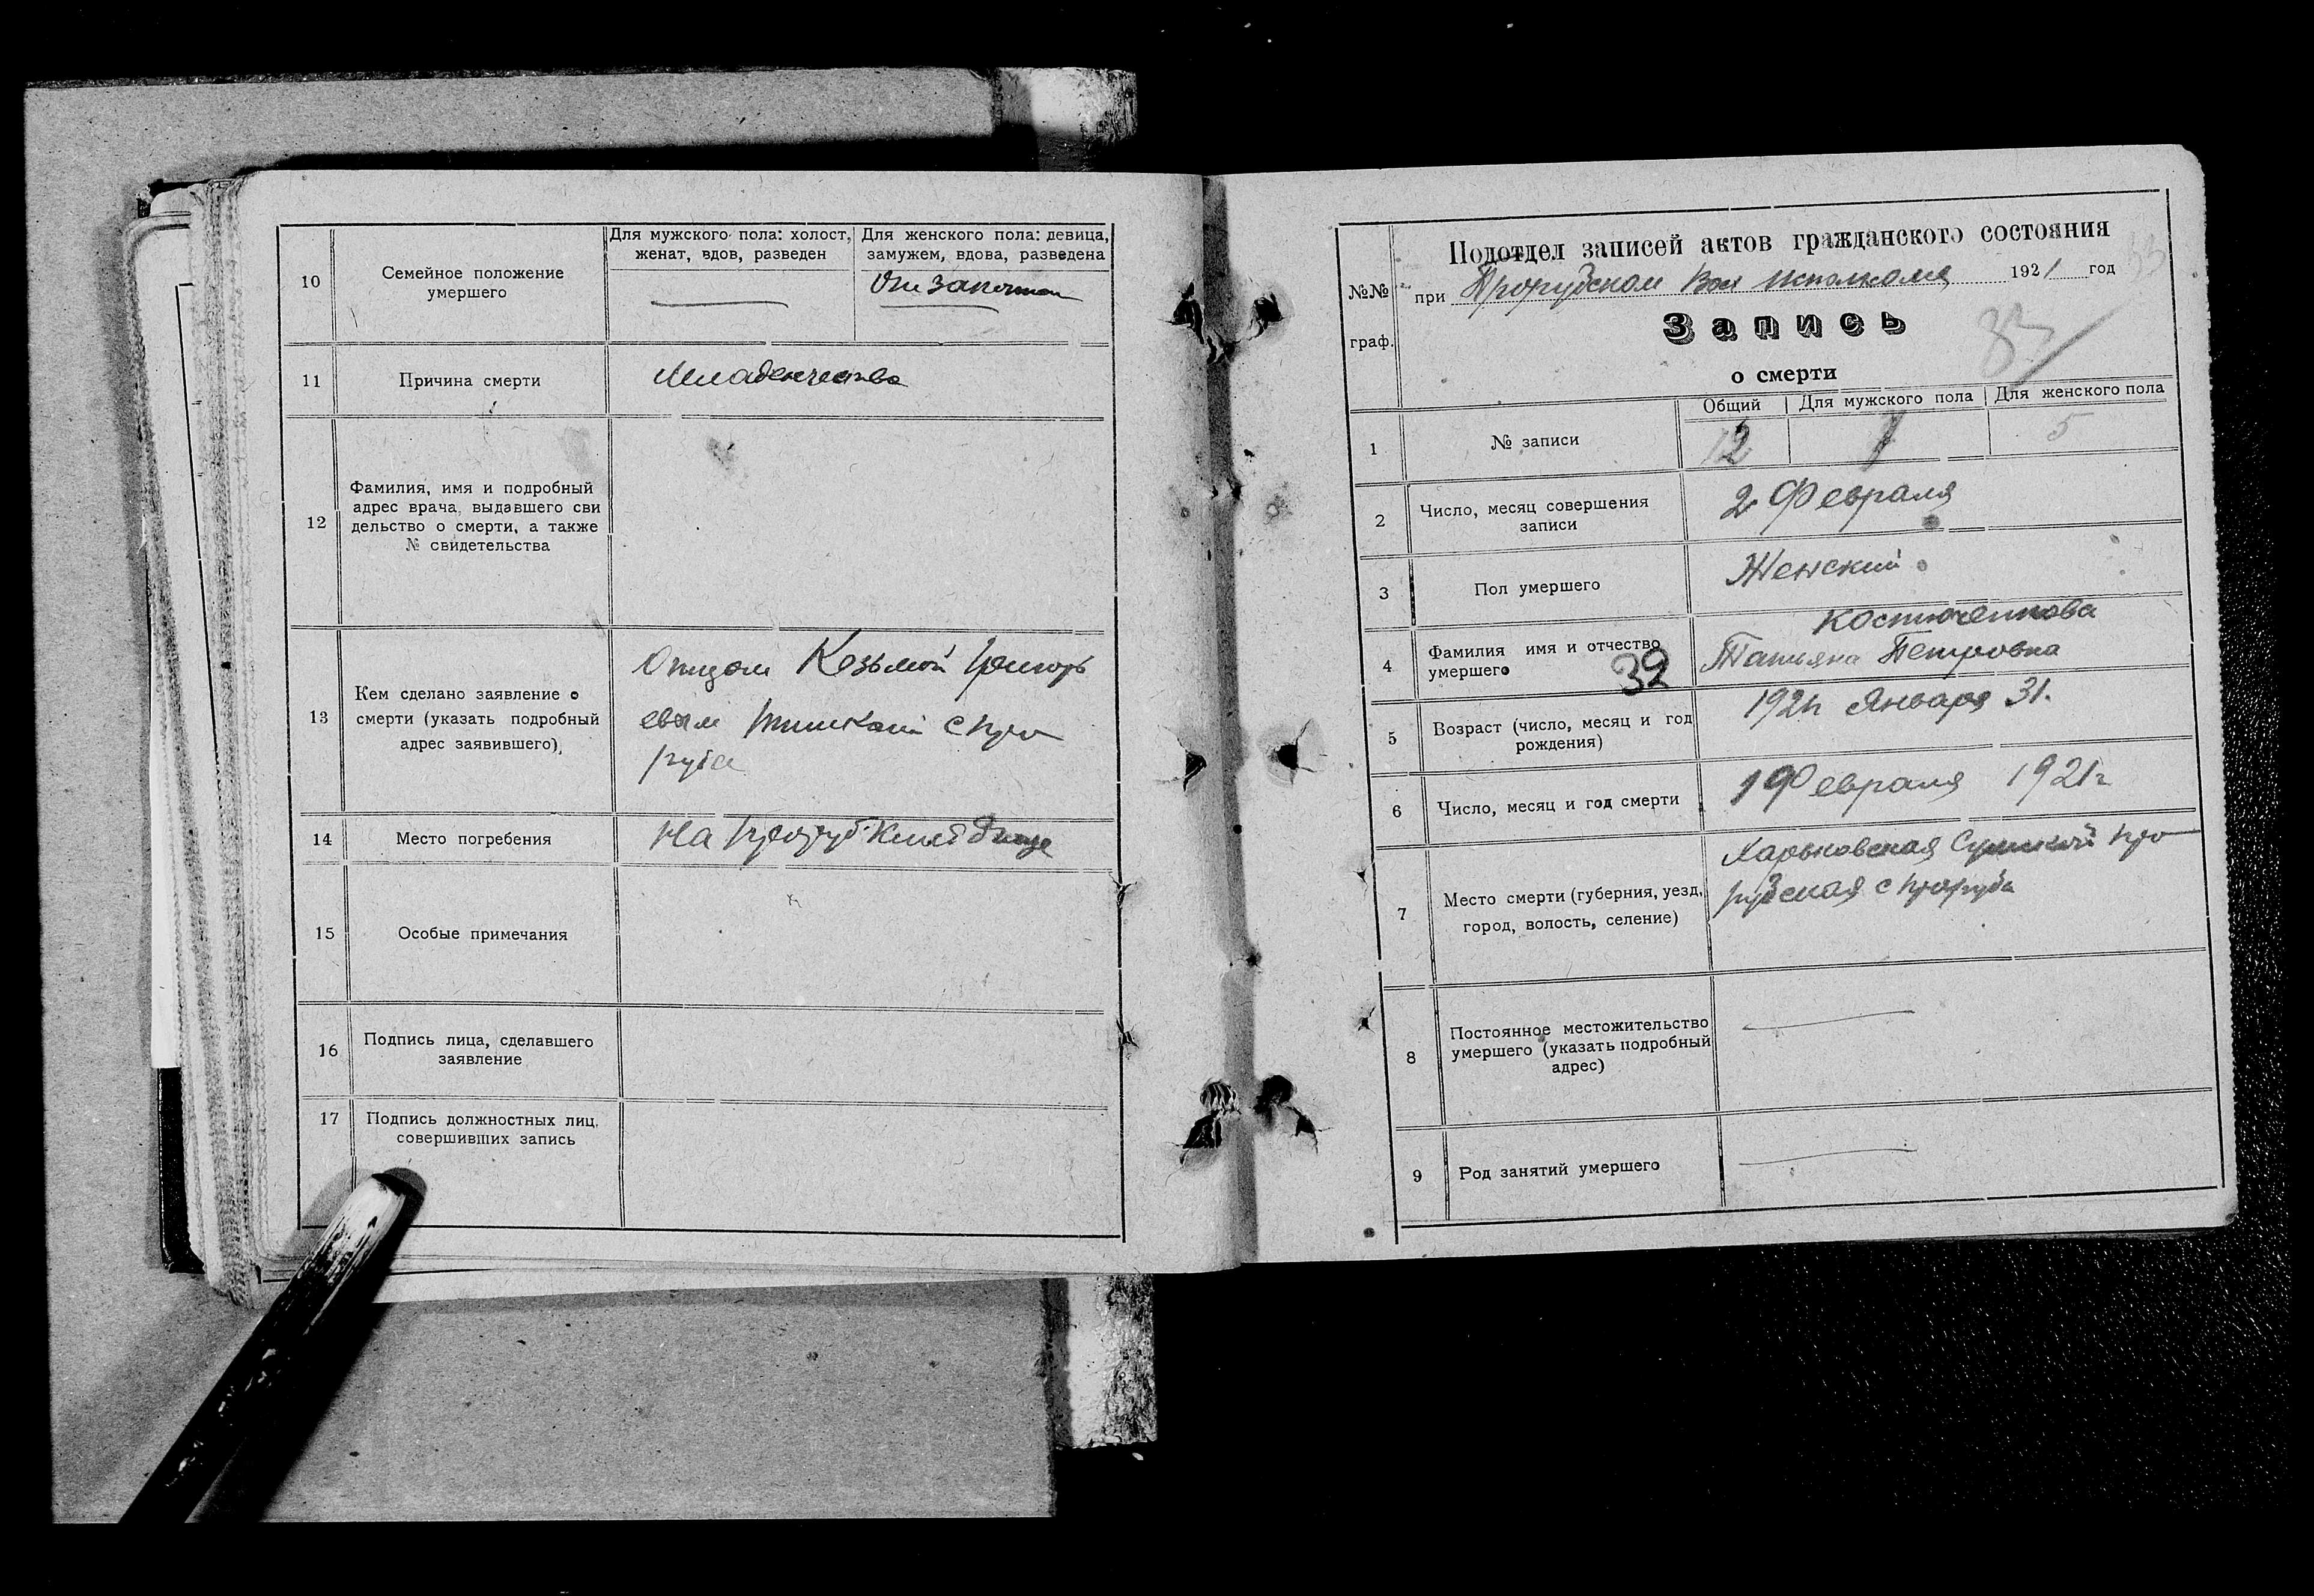 10
Семейное положение
умершего
Для мужского пола: холост,
женат, вдов, разведен
Для женского пола: девица,
замужем, вдова, разведена
11
Причина смерти
Младенчество
12
Фамилия, имя и подробный
адрес врача, выдавшего сви
дельство о смерти, а также
№ свидетельства
13
Кем сделано заявление о
смерти (указать подробный
адрес заявившего),
Отцом Козьмой Григорь
евым с Про
руба
14
Место погребения
На Проруб
15
Особые примечания
16
Подпись лица, сделавшего
заявление
17
Подпись должностных лиц,
совершивших запись
№№
граф.
Подотдел записей актов гражданского состояния
при Прорубском Вол исполкома 1921 год
Запись
33
о смерти
Общий
Для мужского пола
Для женского пола
1
№ записи
12
5
2
Число, месяц совершения
записи
2 Февраля
3
Пол умершего
Женский
4
Фамилия имя и отчество
умершего
32
Костюченкова
Татьяна Петровна
5
Возраст (число, месяц и год
рождения)
1921 Января 31.
6
Число, месяц и год смерти
1 Февраля 1921 г
7
Место смерти (губерния, уезд,
город, волость, селение)
Харьковская Сумский Про
рубская с Проруба
8
Постоянное местожительство
умершего (указать подробный
адрес)
9
Род занятий умершего